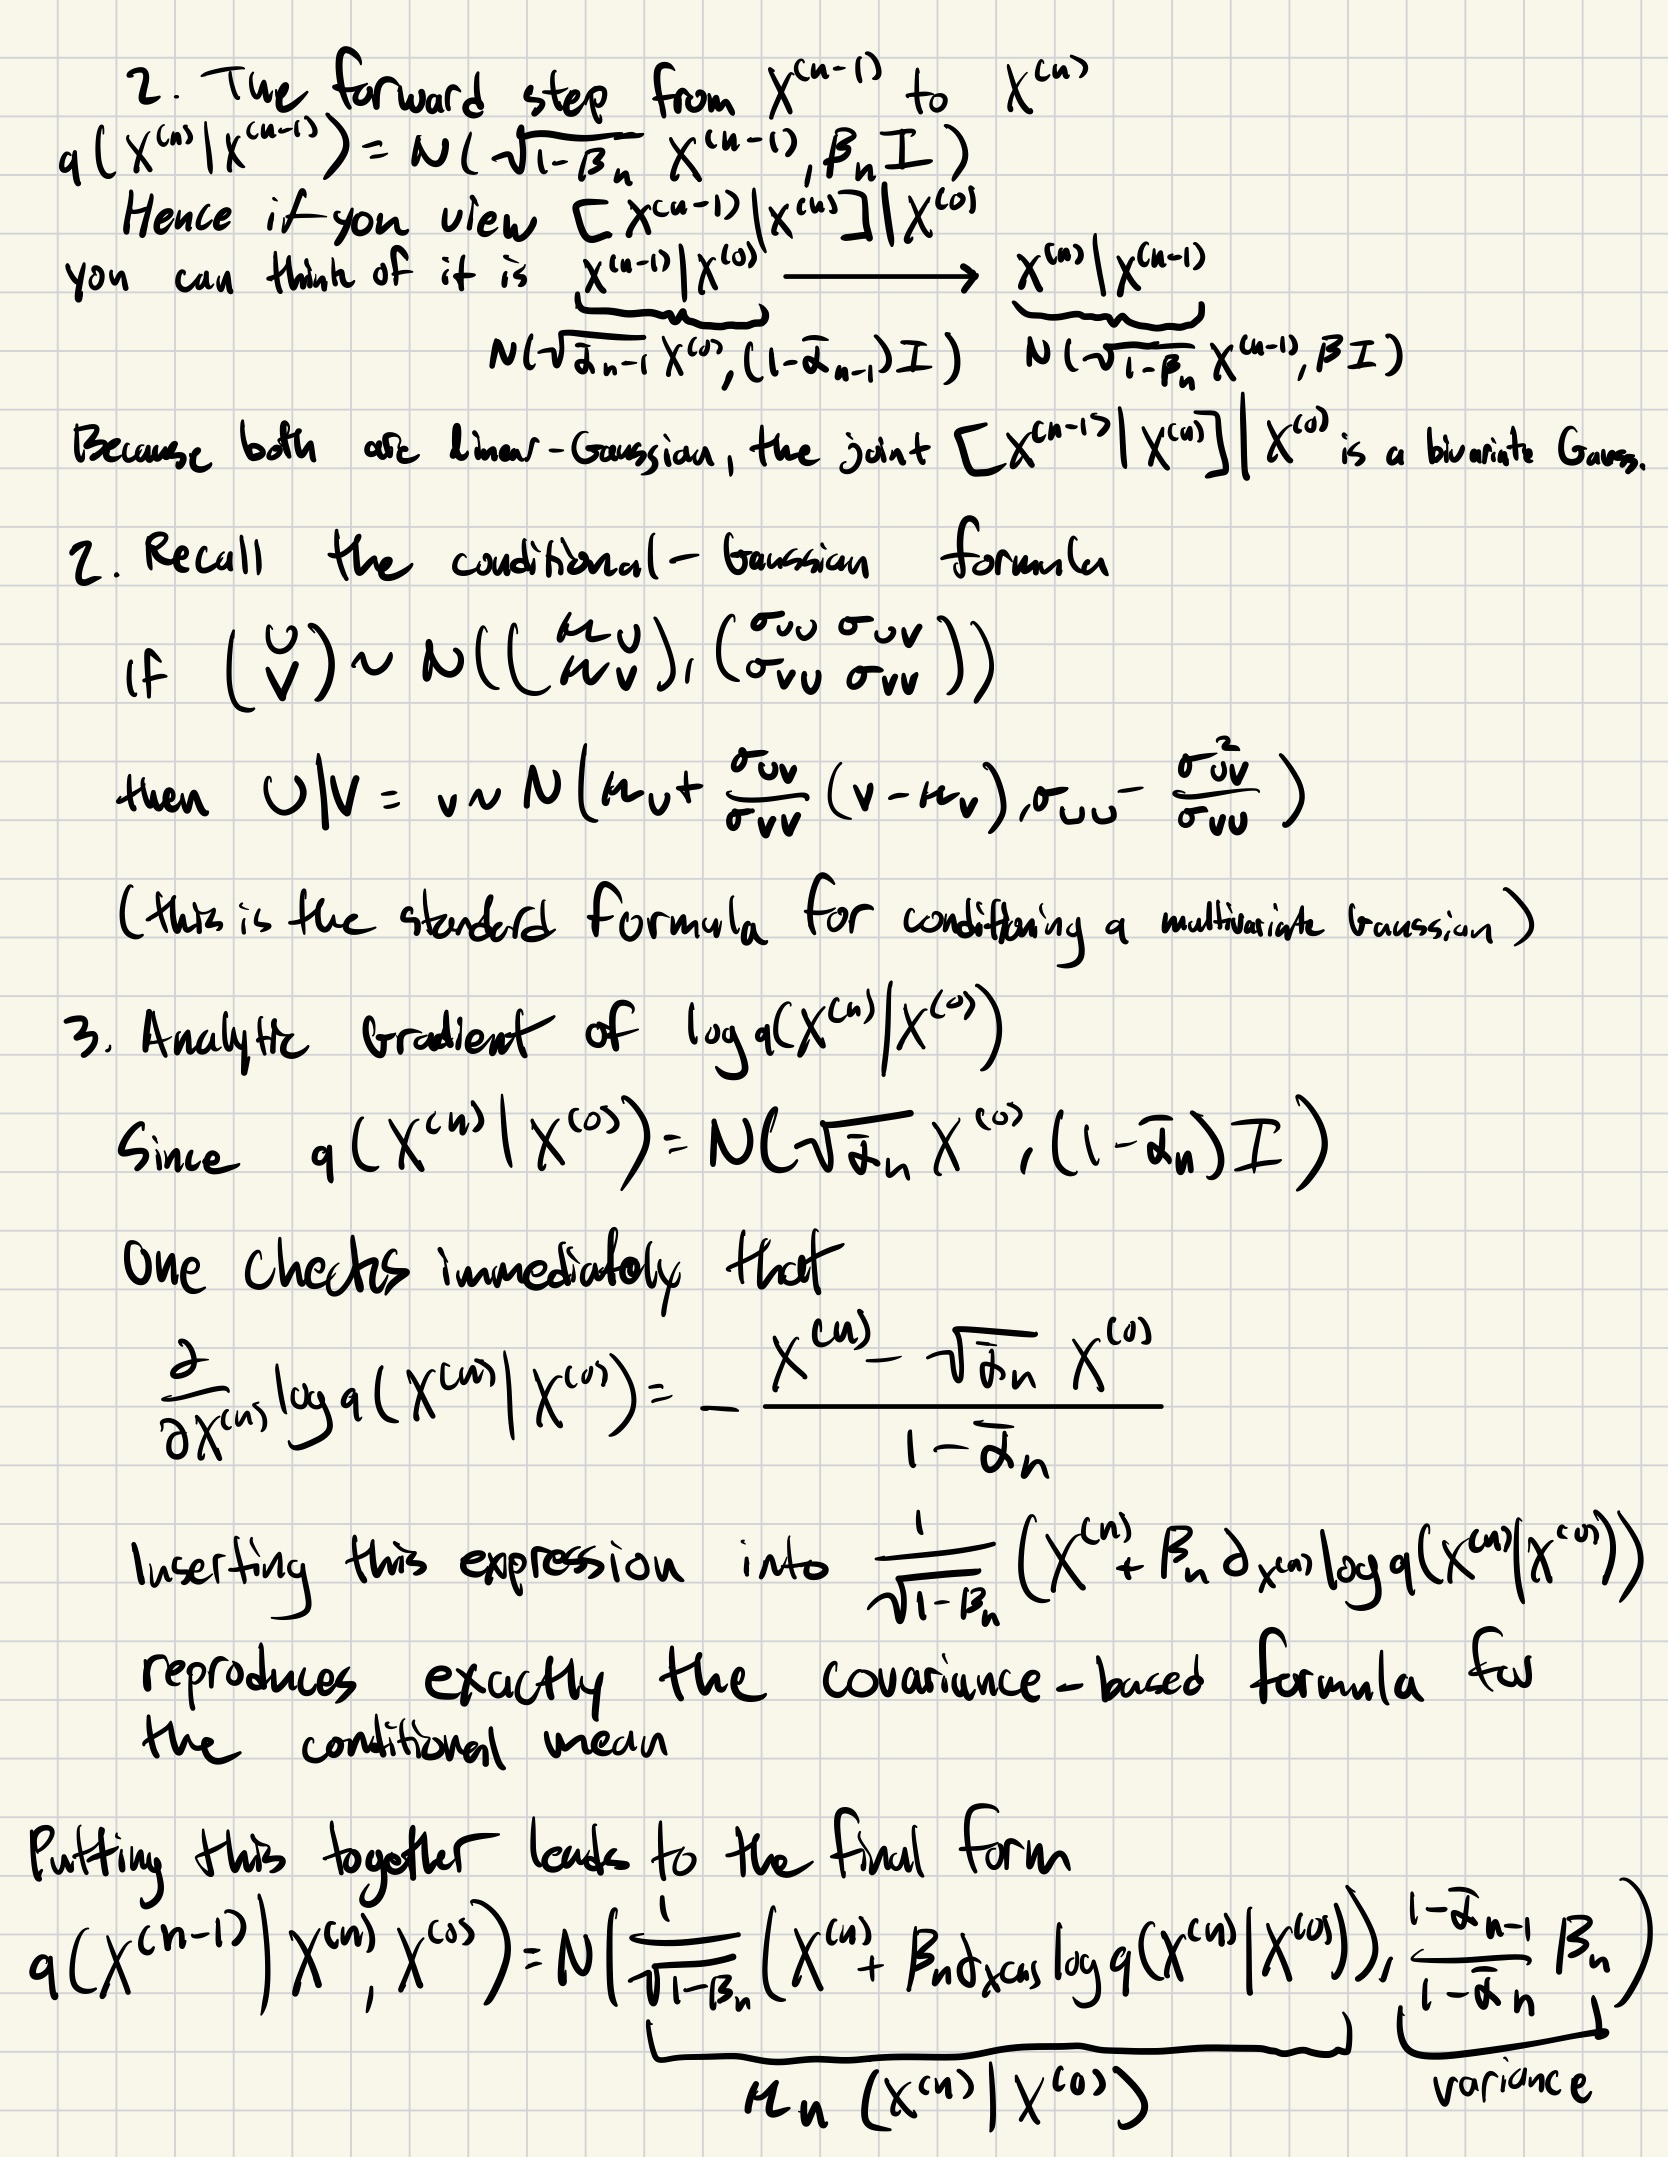 2. The forward step from X^(n-1) to X^(n)
q(X^(n)|X^(n-1)) = N(√(1-β_n) X^(n-1), β_n I)
Hence if you view [X^(n-1)|X^(n)]|X^(0)
you can think of it is X^(n-1)|X^(0) ⟶ X^(n)|X^(n-1)
N(√(ᾱ_(n-1)) X^(0), (1-ᾱ_(n-1))I) N(√(1-β_n) X^(n-1), βI)
Because both are linear-Gaussian, the joint [X^(n-1)|X^(n)]|X^(0) is a bivariate Gauss.
2. Recall the conditional-Gaussian formula
If (U V) ~ N((μ_U μ_V), (σ_UU σ_UV σ_VU σ_VV))
then U|V = v ~ N(μ_U + σ_UV/σ_VV (v-μ_V), σ_UU - σ²_UV/σ_VU)
(this is the standard formula for conditioning a multivariate Gaussian)
3. Analytic Gradient of log q(X^(n)|X^(0))
Since q(X^(n)|X^(0)) = N(√(ᾱ_n) X^(0), (1-ᾱ_n)I)
One checks immediately that
∂/∂X^(n) log q(X^(n)|X^(0)) = - (X^(n) - √(ᾱ_n) X^(0))/(1-ᾱ_n)
Inserting this expression into 1/√(1-β_n) (X^(n) + β_n ∂_X^(n) log q(X^(n)|X^(0)))
reproduces exactly the covariance-based formula for
the conditional mean
Putting this together leads to the final form
q(X^(n-1)|X^(n), X^(0)) = N(1/√(1-β_n) (X^(n) + β_n ∂_X^(n) log q(X^(n)|X^(0))), (1-ᾱ_(n-1))/(1-ᾱ_n) β_n)
μ_n (X^(n)|X^(0)) variance